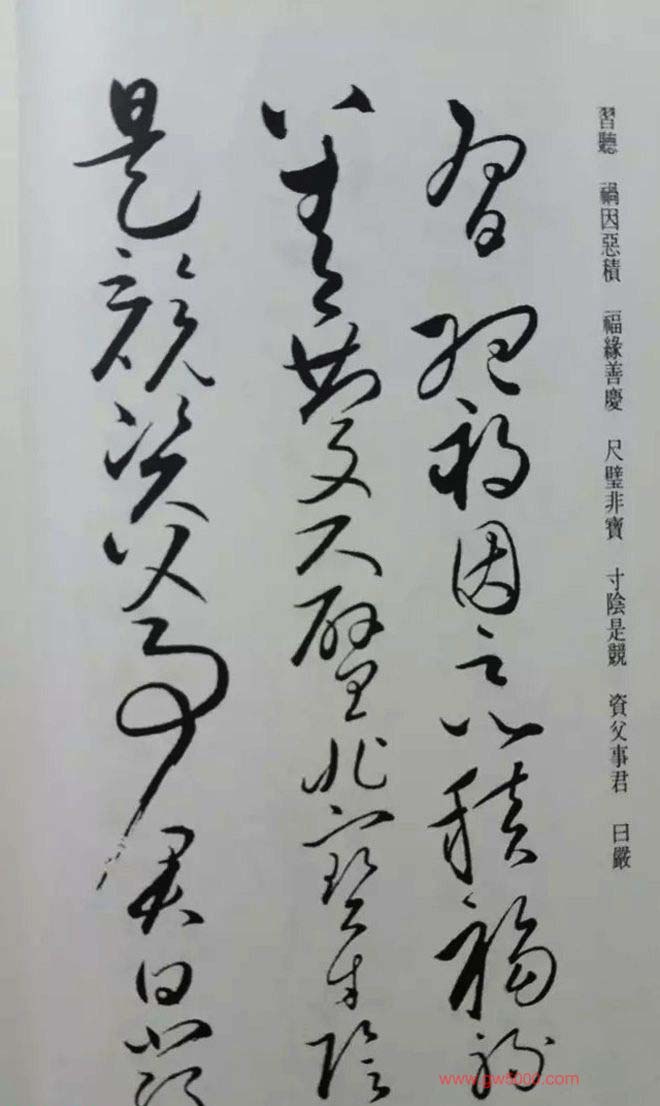 習聽 禍因惡積 福緣善慶 尺璧非寶 寸陰是競 資父事君 曰嚴
習聽禍因惡積福緣
善慶尺璧非寶寸陰
是競資父事君曰嚴
www.gw8000.com